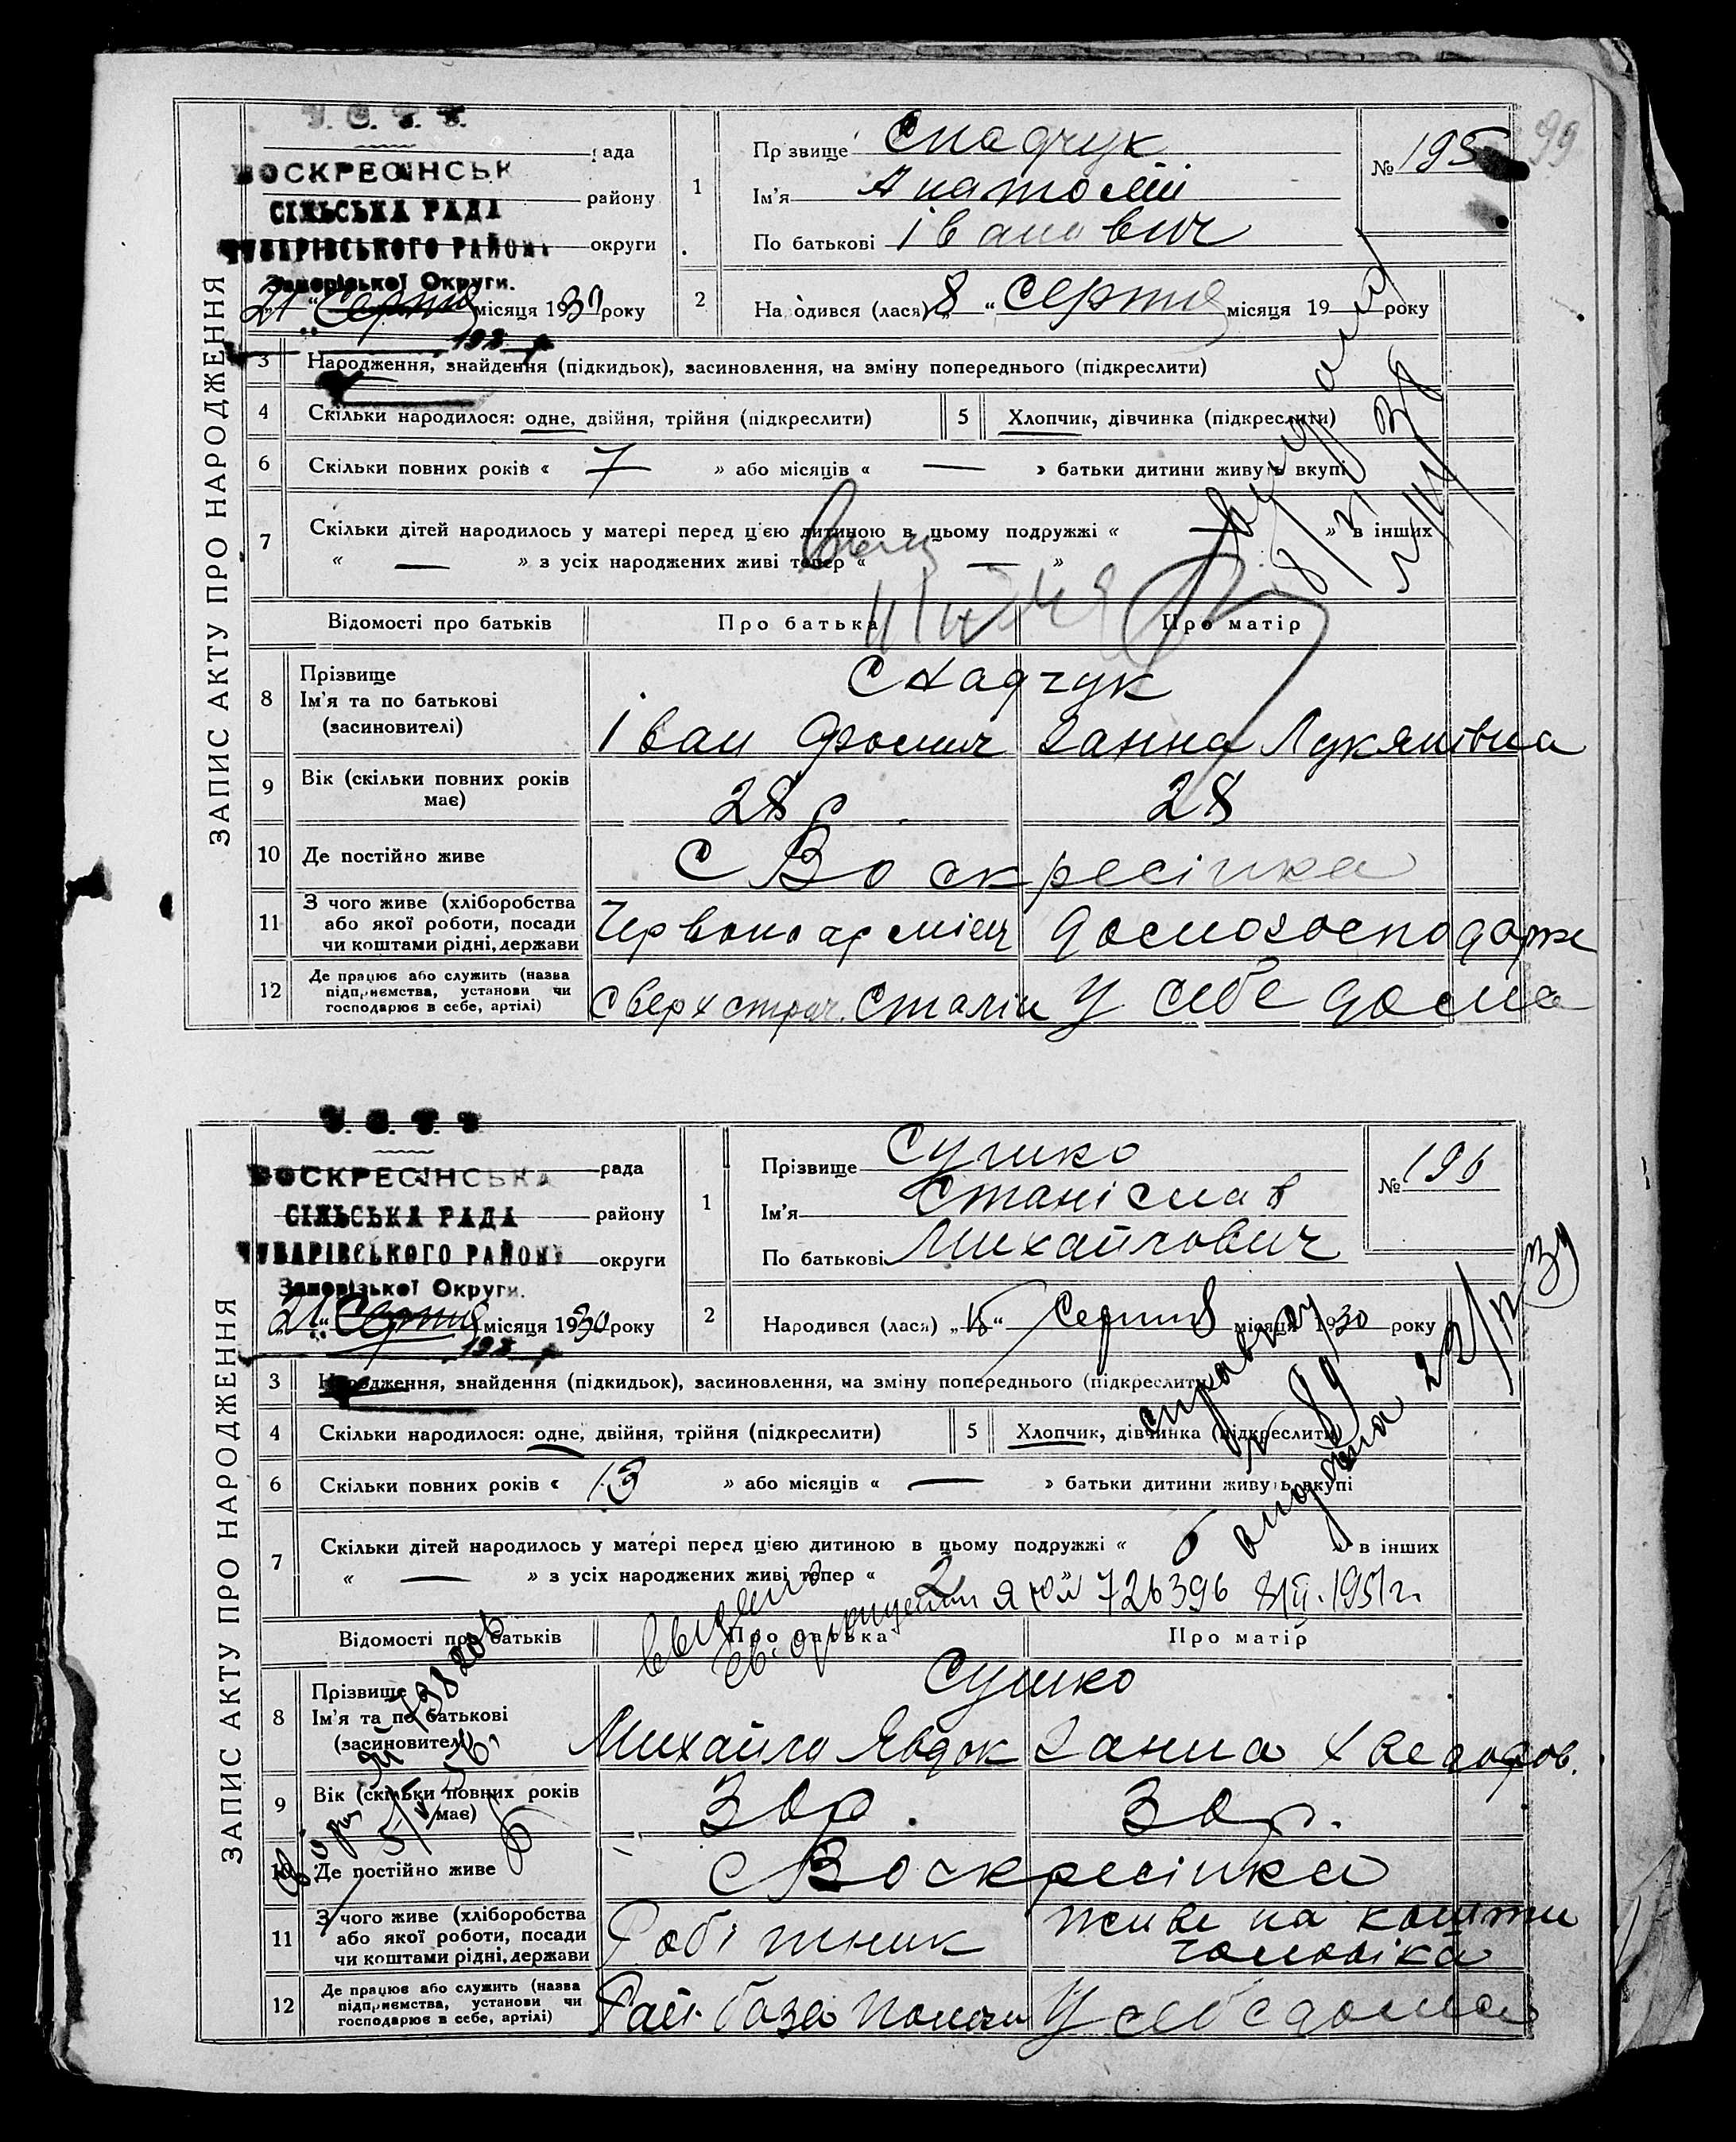 99
ЗАПИС АКТУ ПРО НАРОДЖЕННЯ
У. С. Р. Р.
рада
ВОСКРЕСІНСЬК
району
СІЛЬСЬКА РАДА
округи
ЧУБАРІВСЬКОГО РАЙОНУ
Запорізької Округи.
21 " Серпня місяця 1930 року
192 р
1
Прізвище Скадчук
Ім'я Анатолій
По батькові Іванович
№ 195
2
Народився (лася) „ 8 “ Серпня місяця 19 року
3 Народження, знайдення (підкидьок), засиновлення, на зміну попереднього (підкреслити)
4 Скільки народилося: одне, двійня, трійня (підкреслити)
5 Хлопчик, дівчинка (підкреслити)
6 Скільки повних років « 7 » або місяців « — » батьки дитини живуть вкупі
7 Скільки дітей народилось у матері перед цією дитиною в цьому подружжі « — » в інших
« — » з усіх народжених живі тепер « — »
Відомості про батьків Про батька Про матір
8 Прізвище
Ім'я та по батькові
(засиновителі)
Скадчук
Іван Ганна Лукянівна
9 Вік (скільки повних років має) 28 р. 28
10 Де постійно живе с Воскресінка
11 З чого живе (хліборобства або якої роботи, посади чи коштами рідні, держави Червоноармієць домогосподарка
12 Де працює або служить (назва підприємства, установи чи господарює в себе, артілі) Сталін У себе дома
ЗАПИС АКТУ ПРО НАРОДЖЕННЯ
У. С. Р. Р.
рада
ВОСКРЕСІНСЬКА
району
СІЛЬСЬКА РАДА
округи
ЧУБАРІВСЬКОГО РАЙОНУ
Запорізької Округи.
21 " Серпня місяця 1930 року
192 р
1
Прізвище Сушко
Ім'я Станіслав
По батькові Михайлович
№ 196
2
Народився (лася) „ 15 “ Серпня місяця 1930 року
3 Народження, знайдення (підкидьок), засиновлення, на зміну попереднього (підкреслити)
4 Скільки народилося: одне, двійня, трійня (підкреслити)
5 Хлопчик, дівчинка (підкреслити)
6 Скільки повних років « 13 » або місяців « — » батьки дитини живуть вкупі
7 Скільки дітей народилось у матері перед цією дитиною в цьому подружжі « » в інших
« — » з усіх народжених живі тепер « 2 »
справку
22/IV 39
726396 8/II.1951г.
Відомості про батьків Про батька Про матір
8 Прізвище
Ім'я та по батькові
(засиновителі)
Сушко
Михайло Явдок Ганна Хведоров.
9 Вік (скільки повних років має) 30р. 30р.
10 Де постійно живе с Воскресінка
11 З чого живе (хліборобства або якої роботи, посади чи коштами рідні, держави Робітник живе на кошти чоловіка
12 Де працює або служить (назва підприємства, установи чи господарює в себе, артілі) Рай. база У себе дома